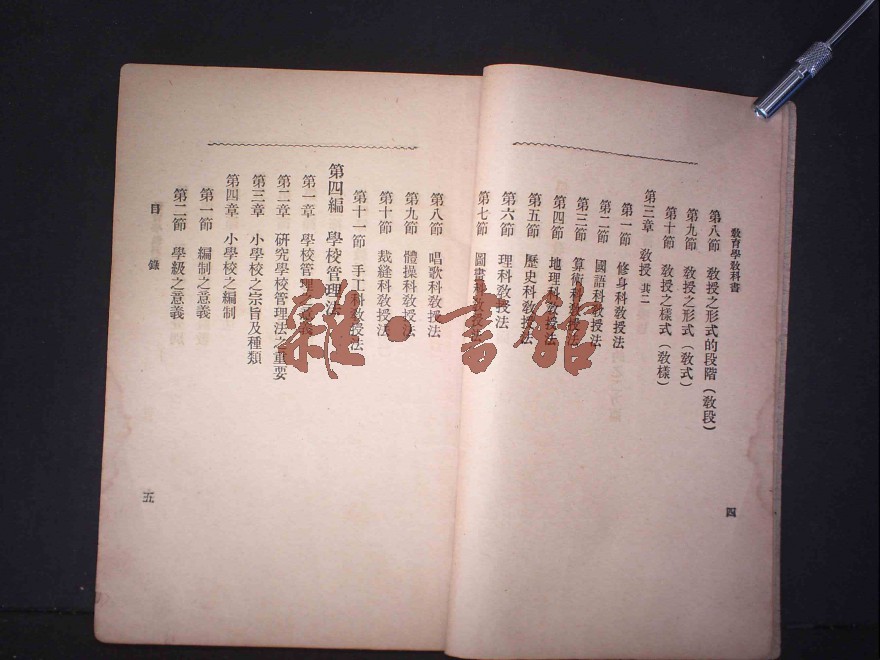 教育學教科書
第八節　教授之形式的段階（教段）
第九節　教授之形式（教式）
第十節　教授之樣式（教樣）
第三章　教授　其二
第一節　修身科教授法
第二節　國語科教授法
第三節　算術科教授法
第四節　地理科教授法
第五節　歷史科教授法
第六節　理科教授法
第七節　圖畫科教授法
四
第八節　唱歌科教授法
第九節　體操科教授法
第十節　裁縫科教授法
第十一節　手工科教授法
第四編　學校管理法
第一章　學校管理之意義
第二章　研究學校管理法之重要
第三章　小學校之宗旨及種類
第四章　小學校之編制
第一節　編制之意義
第二節　學級之意義
目錄
五
雜·書館